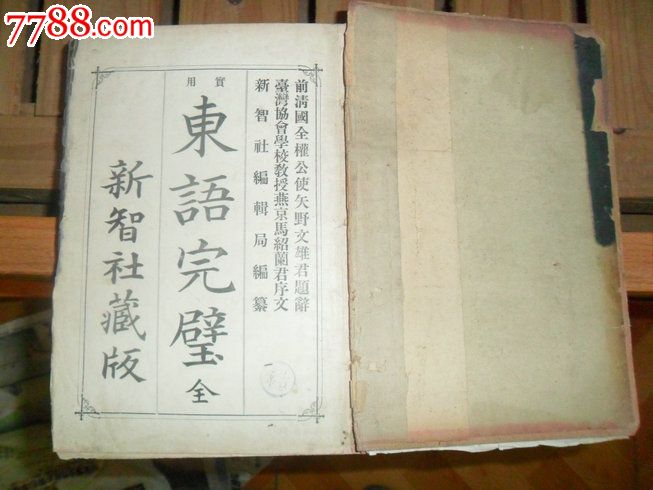 7788.com
前清國全權公使矢野文雄君題辭
臺灣協會學校教授燕京馬紹蘭君序文
新智社編輯局編纂
實用
東語完璧全
新智社藏版